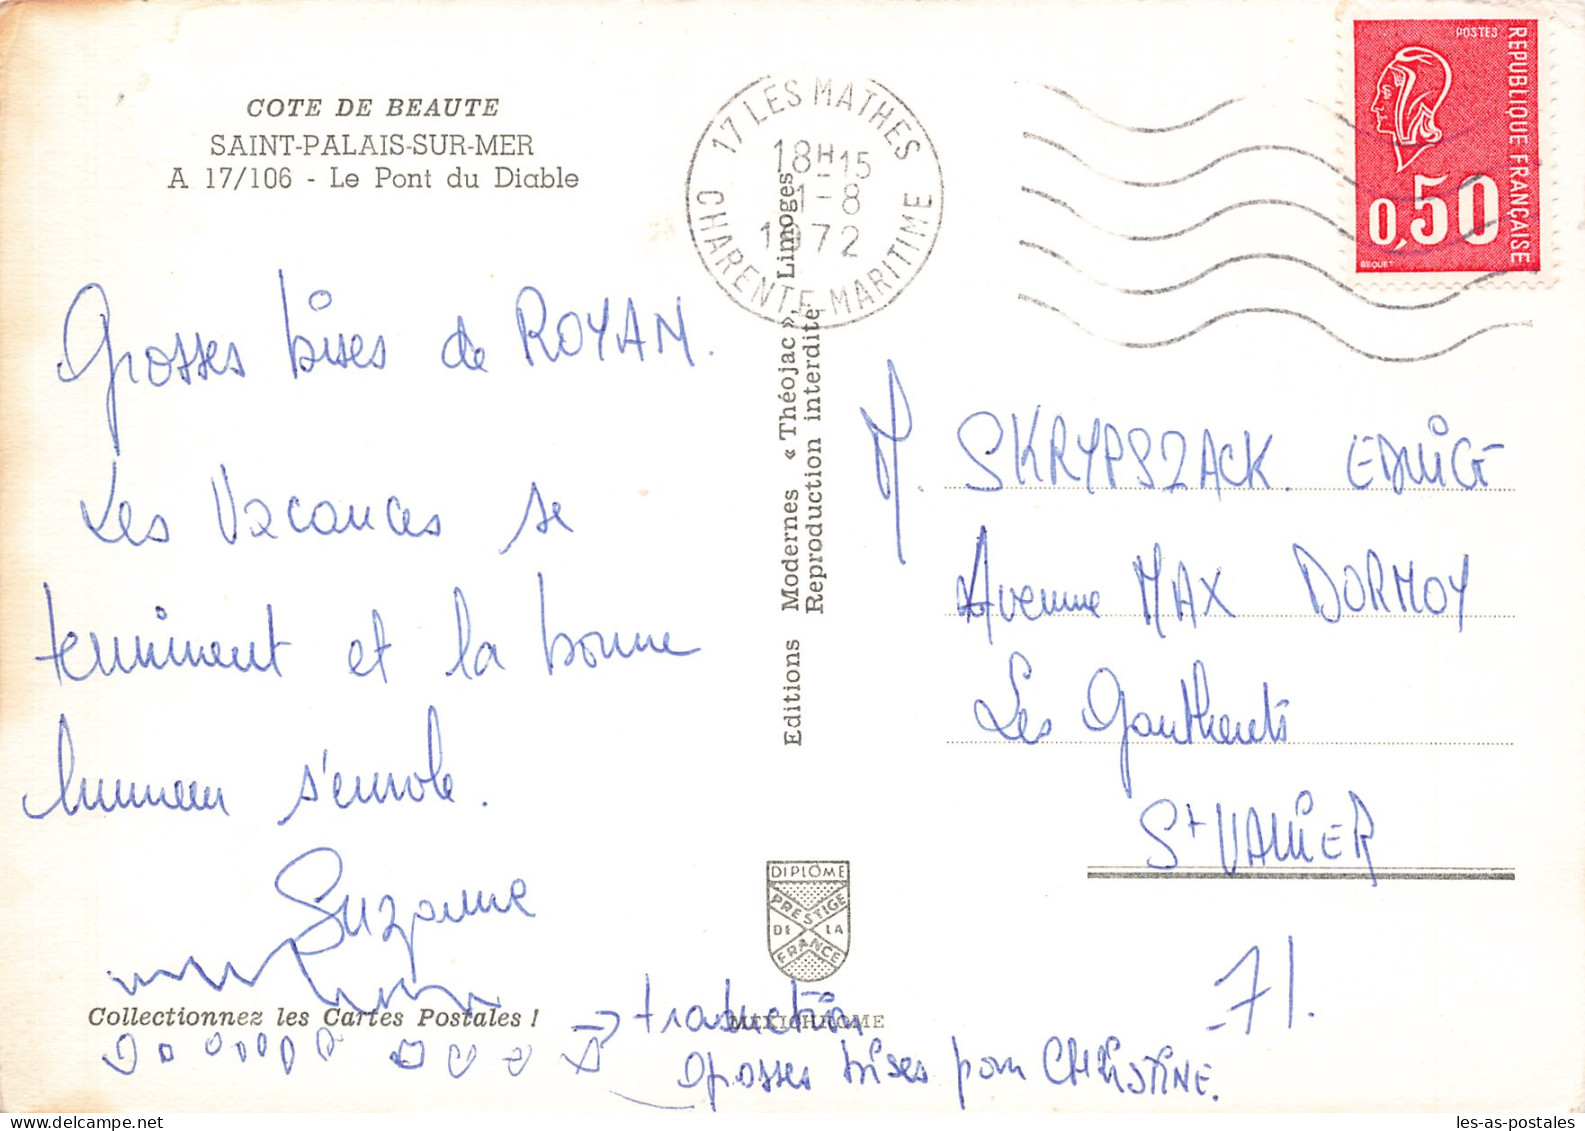 COTE DE BEAUTE
SAINT-PALAIS-SUR-MER
A 17/106 - Le Pont du Diable
Grosses bises de ROYAN.
Les Vacances se
terminent et la bonne
humeur s'envole.
Suzanne
Collectionnez les Cartes Postales !
→ traduction
grosses bises pour CHRISTINE.
Editions Modernes « Théojac », Limoges
Reproduction interdite
DIPLÔME
PRESTIGE
DE LA
FRANCE
MEXICHROME
17 LES MATHES
18H15
1-8
1972
CHARENTE-MARITIME
POSTES
REPUBLIQUE FRANÇAISE
0,50
BEQUET
M. SKRYPSZACK. EDWIGE
Avenue MAX DORMOY
Les Gautherets
St VALLIER
71.
les-as-postales